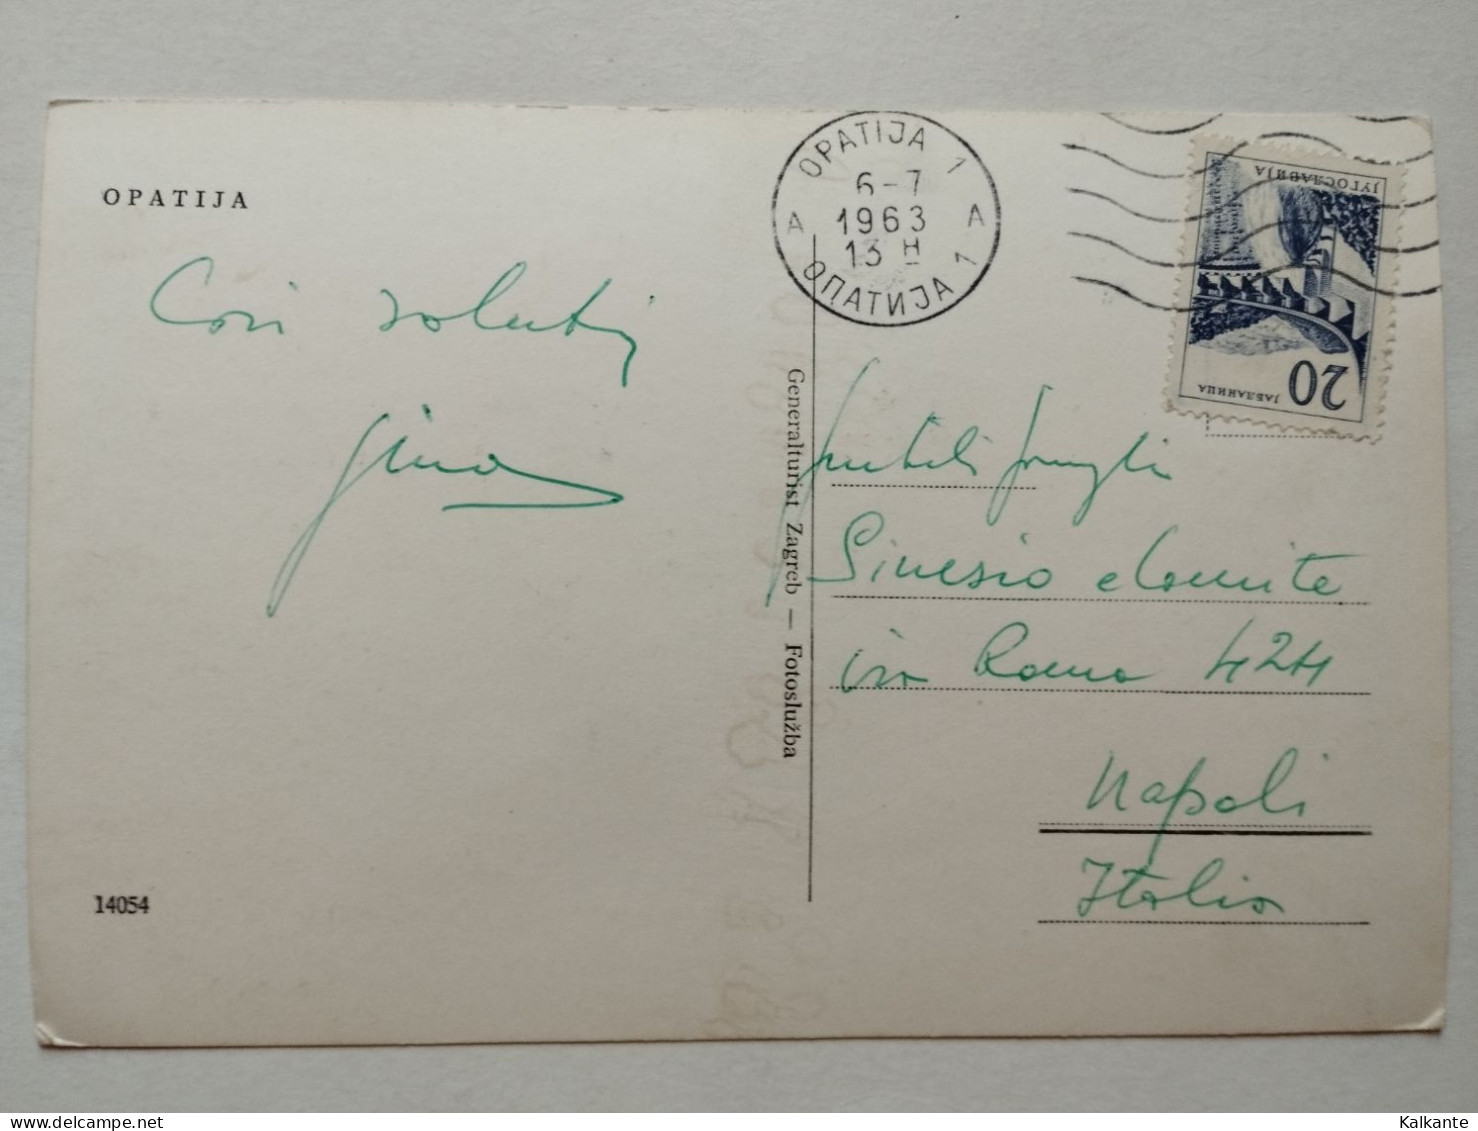 OPATIJA
Cari saluti
Gina
14054
Generalturist Zagreb — Fotoslužba
OPATIJA 1
6-7
1963
13 H
A A
ОПАТИЈА 1
ЈУГОСЛАВИЈА
ЈАБЛАНИЦА
20
Sinesio
via Roma 424
Napoli
Italia
Kalkante